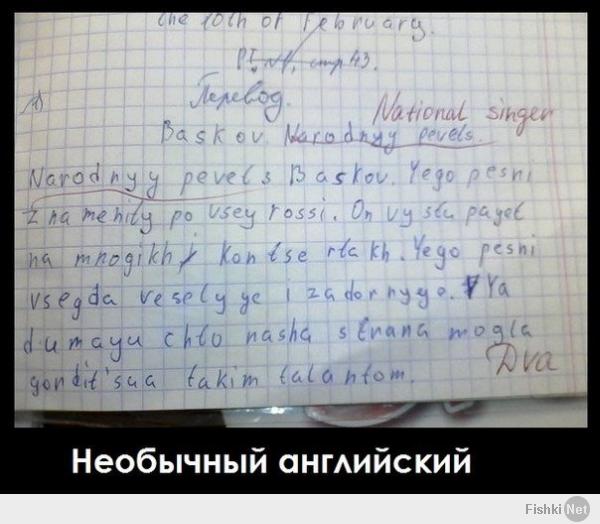 the 10th of February.
P1, №1, стр 43.
Перевод.
National singer
Baskov. Narodnyy pevels.
Narodnyy pevels Baskov. Yego pesni
znamenity po vsey rossi. On vystupayet
na mnogikh kontsertakh. Yego pesni
vsegda veselyye i zadornyye. Ya
dumayu chto nasha strana mogla
gordit'sya takim talantom.
Dva
Необычный английский
Fishki Net